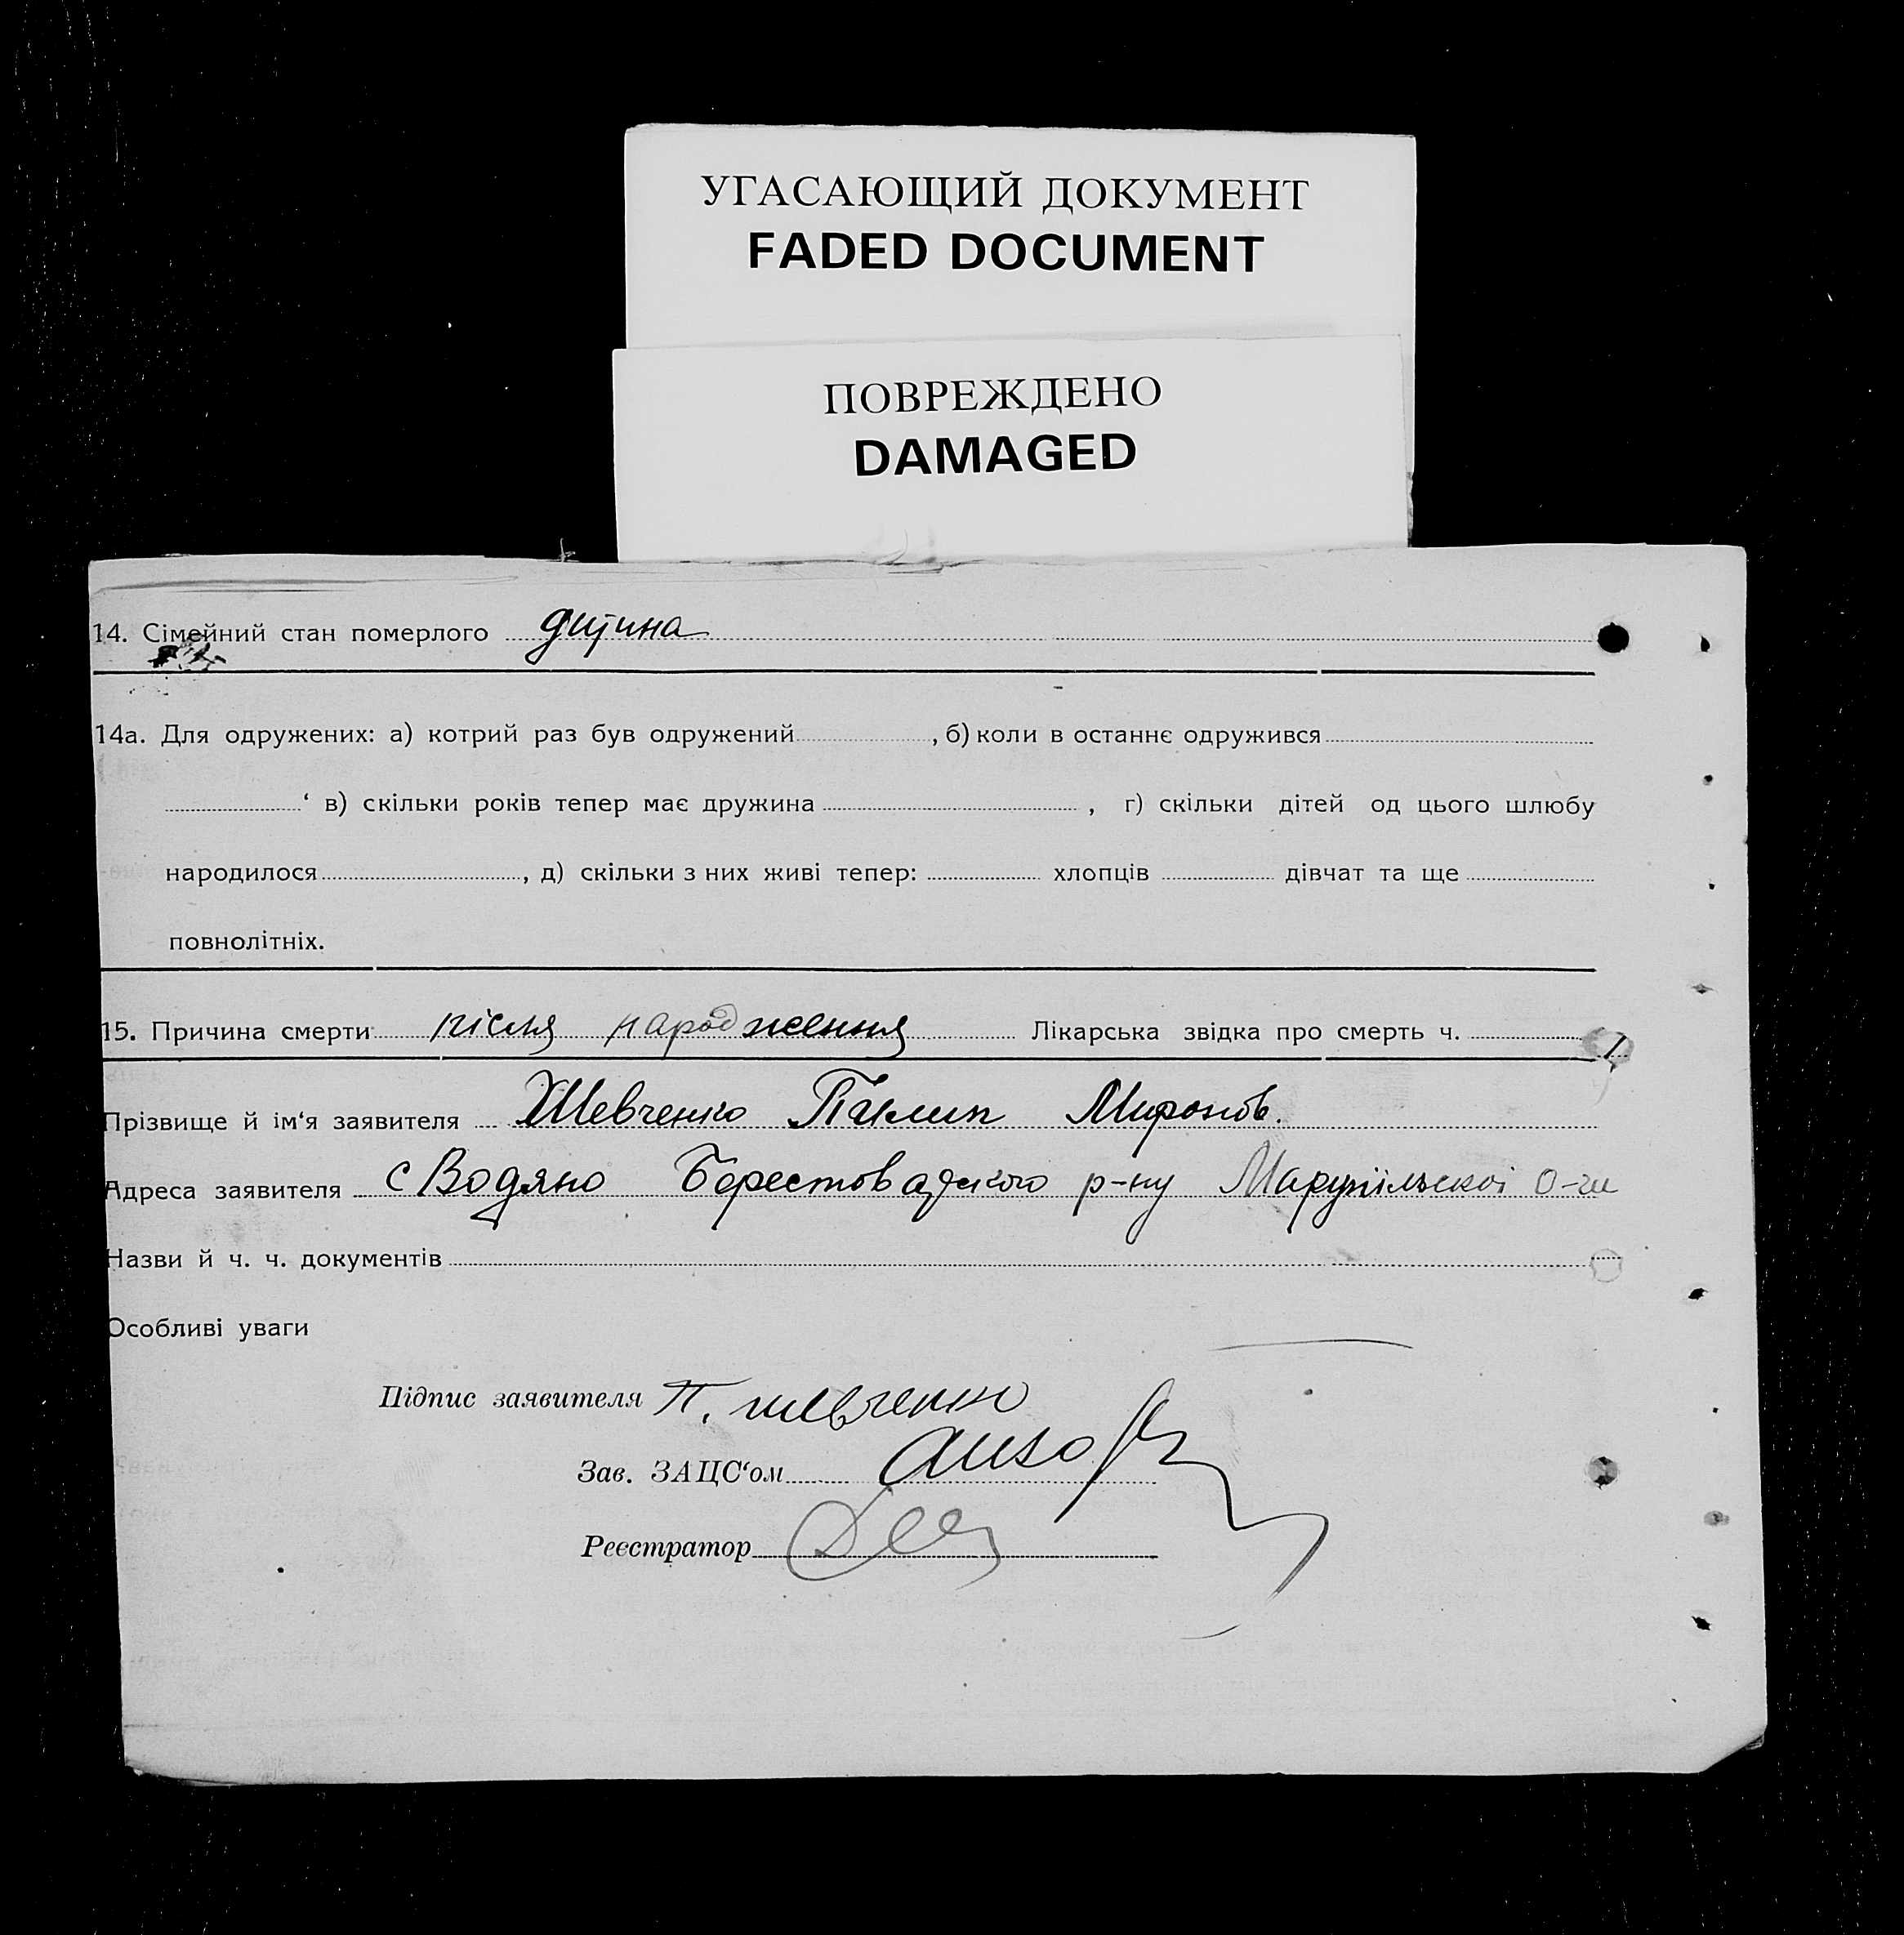 УГАСАЮЩИЙ ДОКУМЕНТ
FADED DOCUMENT
ПОВРЕЖДЕНО
DAMAGED
14. Сімейний стан померлого дитина
14а. Для одружених: а) котрий раз був одружений , б) коли в останнє одружився
‘ в) скільки років тепер має дружина , г) скільки дітей од цього шлюбу
народилося , д) скільки з них живі тепер: хлопців дівчат та ще
повнолітніх.
15. Причина смерти після народження Лікарська звідка про смерть ч.
Прізвище й ім‘я заявителя Шевченко Пилип Миронов.
Адреса заявителя с Водяно р-ну Марупільскої о-ги
Назви й ч. ч. документів
Особливі уваги
Підпис заявителя П. шевченко
Зав. ЗАЦС‘ом
Реєстратор